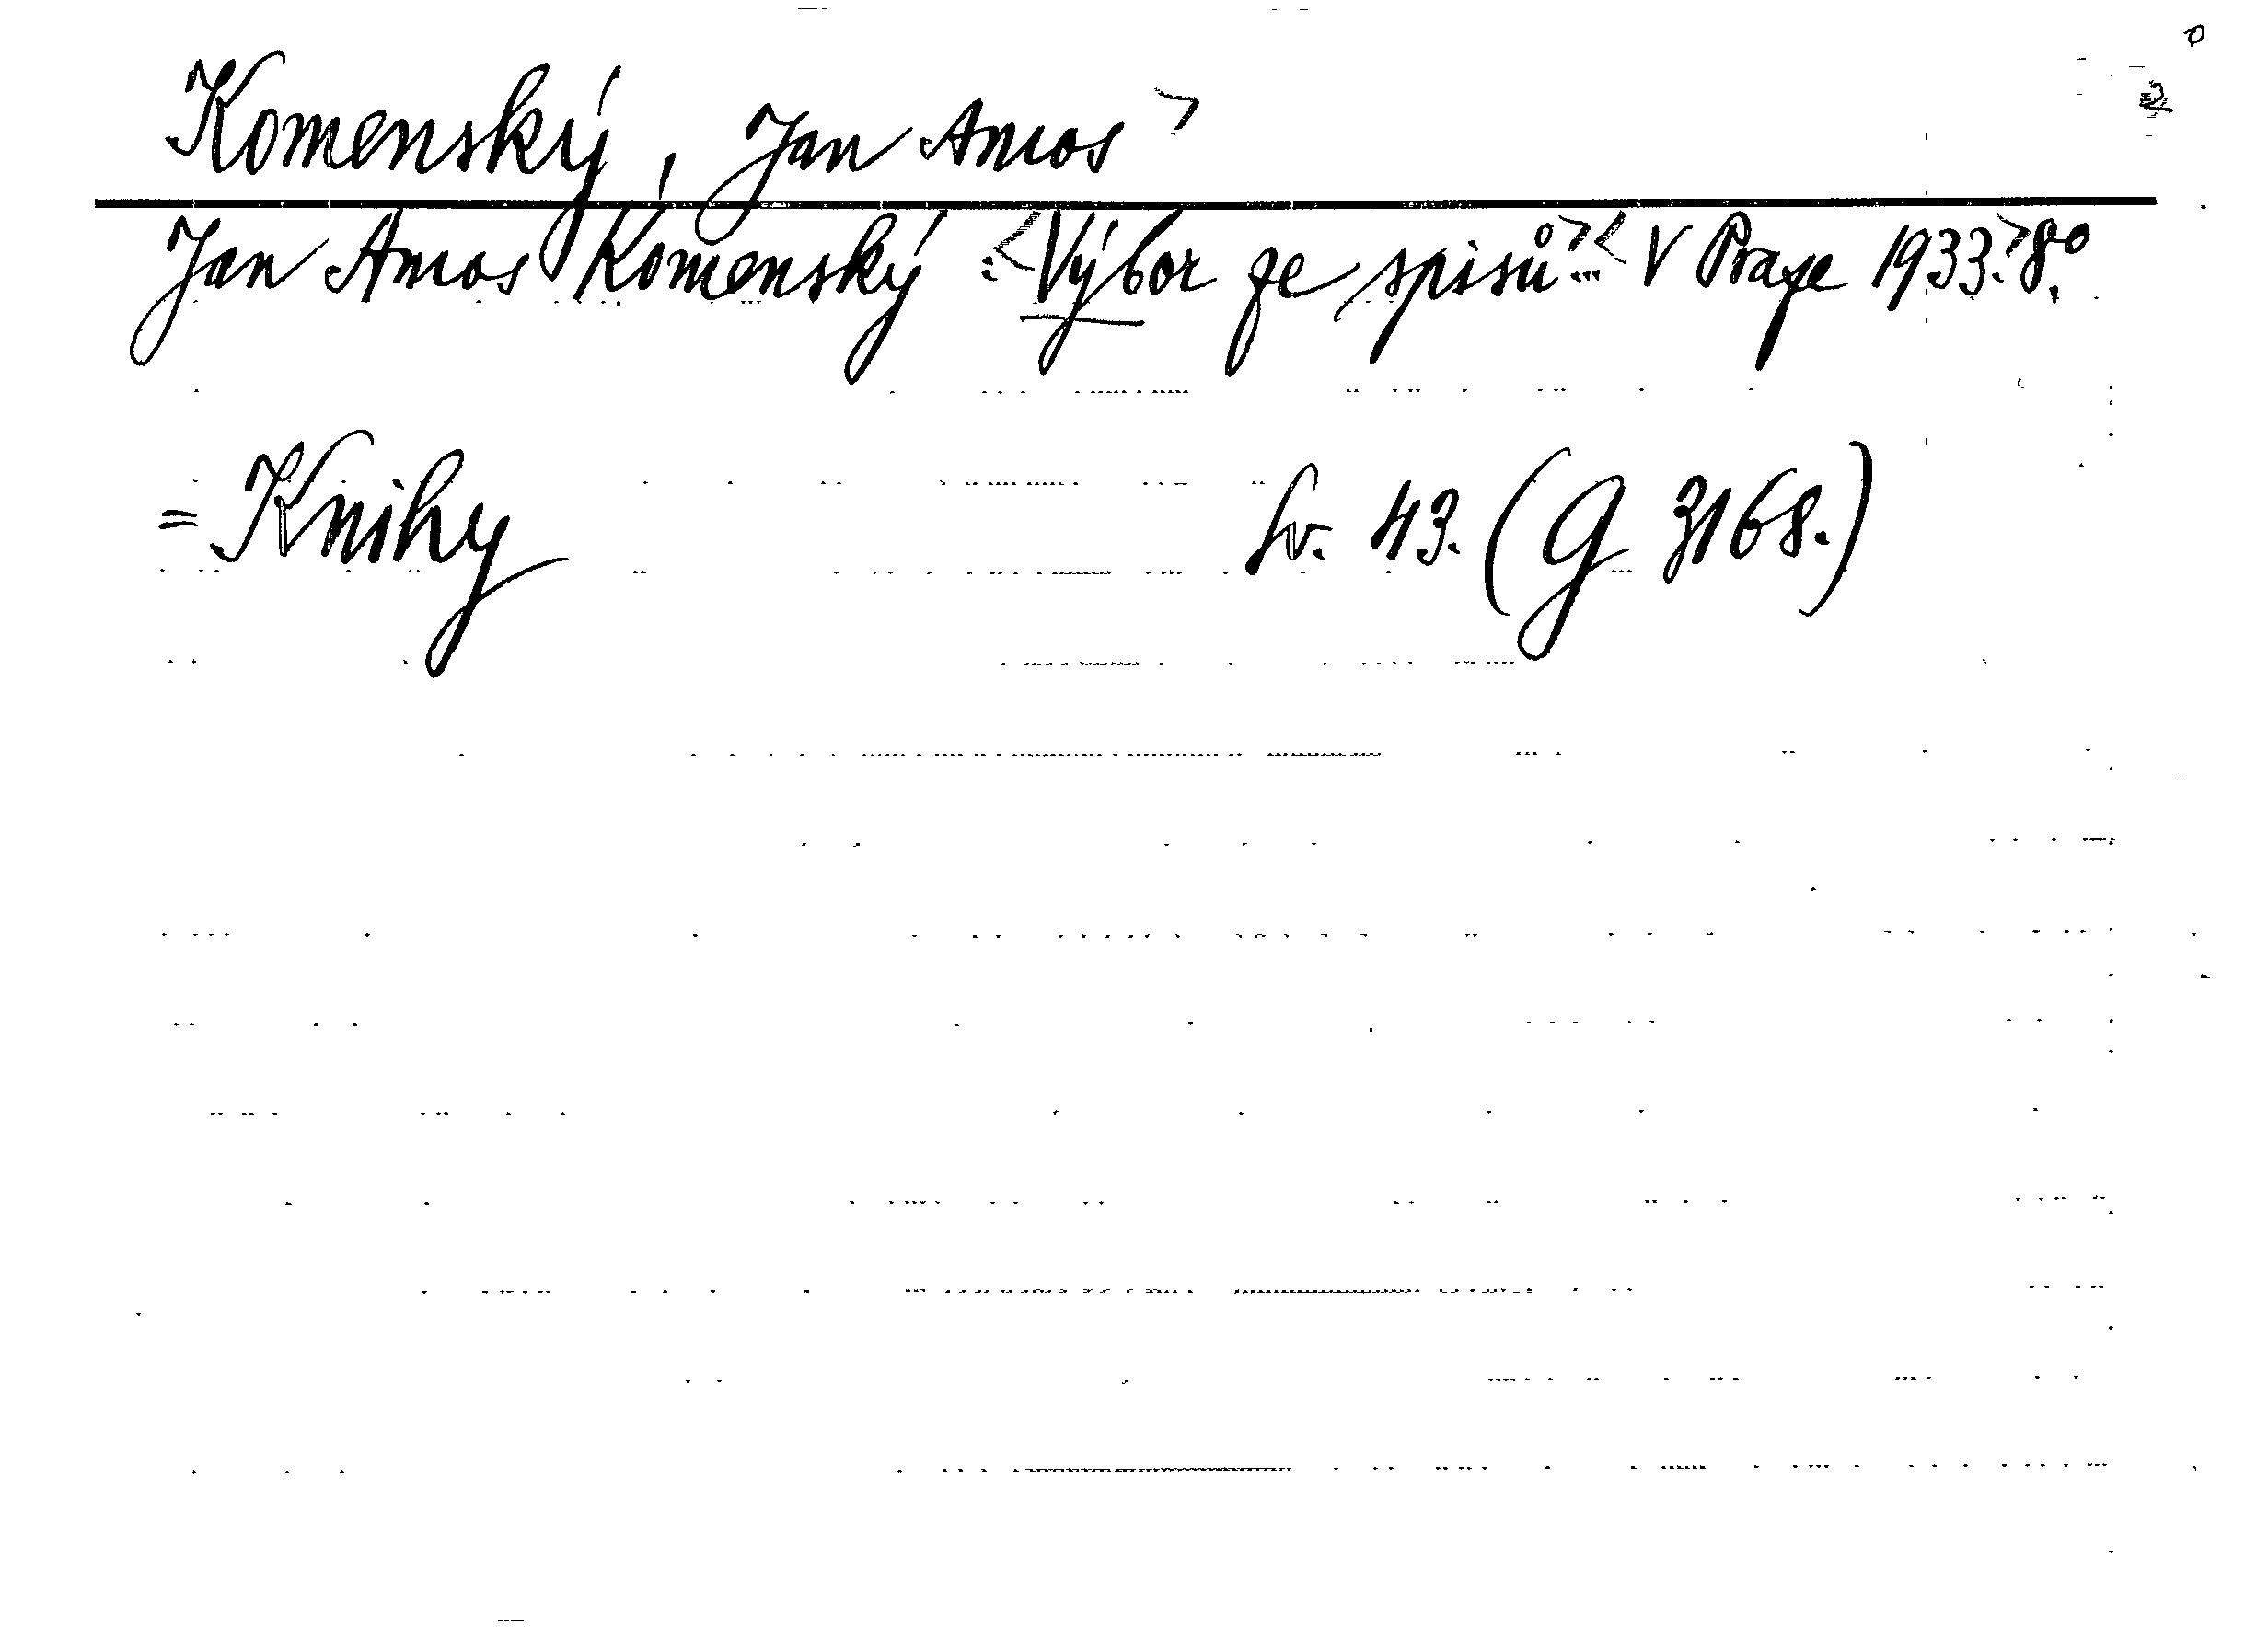 Komenský, Jan Amos >
Jan Amos Komenský : <Výbor ze spisů> ... <V Praze 1933.> 8.°
= Knihy sv. 43. (G 3168.)